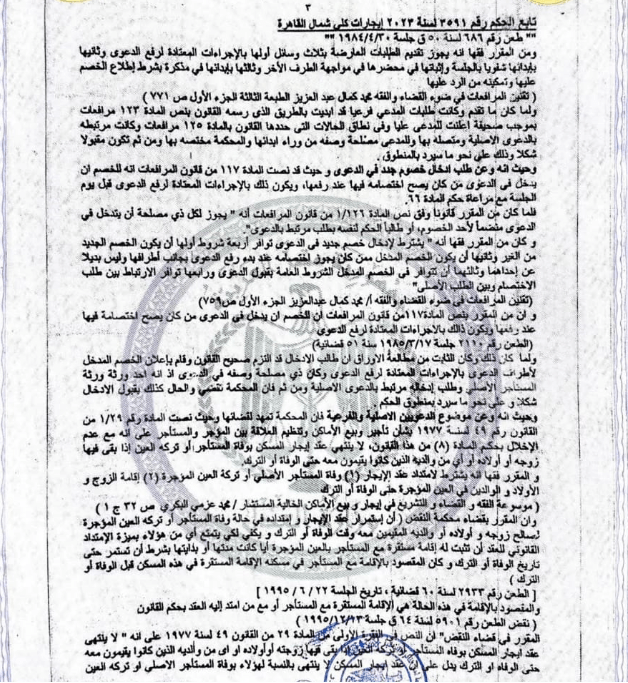 ٣
تابع الحكم رقم ٣٥٩١ لسنة ٢٠٢٣ إيجارات كلي شمال القاهرة
"" طعن رقم ٦٨٦ لسنة ٥٠ ق جلسة ١٩٨٤/٤/٣٠ ""
ومن المقرر فقها انه يجوز تقديم الطلبات العارضة بثلاث وسائل أولها بالإجراءات المعتادة لرفع الدعوى وثانيها
بإبدائها شفويا بالجلسة وإثباتها في محضرها في مواجهة الطرف الأخر وثالثها بإبدائها في مذكرة بشرط إطلاع الخصم
عليها وتمكينه من الرد عليها
( تقنين المرافعات في ضوء القضاء والفقه محمد كمال عبد العزيز الطبعة الثالثة الجزء الأول ص ٧٧١ )
ولما كان ما تقدم وكانت طلبات المدعي فرعيا قد ابديت بالطريق الذي رسمه القانون بنص المادة ١٢٣ مرافعات
بموجب صحيفة أعلنت للمدعى عليا وفى نطاق الحالات التى حددها القانون بالمادة ١٢٥ مرافعات وكانت مرتبطه
بالدعوى الاصلية ومتصلة بها وللمدعي مصلحة وصفه من وراء ابدائها والمحكمة مختصه بها ومن ثم تكون مقبولا
شكلا وذلك على نحو ما سيرد بالمنطوق.
وحيث انه وعن طلب ادخال خصوم جدد في الدعوى و حيث قد نصت المادة ١١٧ من قانون المرافعات انه للخصم ان
يدخل في الدعوى من كان يصح اختصامه فيها عند رفعها، ويكون ذلك بالإجراءات المعتادة لرفع الدعوى قبل يوم
الجلسة مع مراعاة حكم المادة ٦٦.
فلما كان من المقرر قانونا وفق نص المادة ١/١٢٦ من قانون المرافعات أنه " يجوز لكل ذي مصلحة أن يتدخل في
الدعوى منضماً لأحد الخصوم، أو طالباً الحكم لنفسه بطلب مرتبط بالدعوى".
و كان من المقرر فقها أنه " يشترط لإدخال خصم جديد في الدعوى توافر أربعة شروط أولها أن يكون الخصم الجديد
من الغير وثانيها أن يكون الخصم المدخل ممن كان يجوز اختصامه عند بدء رفع الدعوى بجانب أطرافها وليس بديلا
عن إحداهما وثالثهما أن تتوافر في الخصم المدخل الشروط العامة بقبول الدعوى ورابعها توافر الارتباط بين طلب
الاختصام وبين الطلب الأصلي"
(تقنين المرافعات في ضوء القضاء والفقه أ/ محمد كمال عبدالعزيز الجزء الأول ص٧٥٩)
و ان من المقرر بنص المادة١١٧من قانون المرافعات أن للخصم ان يدخل في الدعوى من كان يصح اختصامة فيها
عند رفعها ويكون ذالك بالاجراءات المعتادة لرفع الدعوى
(الطعن رقم ٢١١٠ جلسة ١٩٨٥/٣/١٧ سنة ٥١ قضائية)
ولما كان ذلك وكان الثابت من مطالعة الاوراق ان طالب الادخال قد التزم صحيح القانون وقام بإعلان الخصم المدخل
لأطراف الدعوى بالإجراءات المعتادة لرفع الدعوى وكان ذي مصلحة وصفه في الدعوى اذ انه احد ورثة ورثة
المستأجر الأصلي وطلب إدخاله مرتبط بالدعوى الاصلية ومن ثم فان المحكمة تقضي والحال كذلك بقبول الادخال
شكلا و على نحو ما سيرد بمنطوق الحكم .
وحيث انه وعن موضوع الدعويين الاصلية والفرعية فان المحكمة تمهد لقضائها وحيث نصت المادة رقم ١/٢٩ من
القانون رقم ٤٩ لسنة ١٩٧٧ بشأن تأجير وبيع الأماكن وتنظيم العلاقة بين المؤجر والمستأجر على انه مع عدم
الإخلال بحكم المادة (٨) من هذا القانون، لا ينتهي عقد إيجار المسكن بوفاة المستأجر أو تركه العين إذا بقى فيها
زوجه أو أولاده أو أي من والديه الذين كانوا يقيمون معه حتى الوفاة أو الترك.
و المقرر فقها انه يشترط لامتداد عقد الإيجار (١) وفاة المستأجر الأصلي أو تركة العين المؤجرة (٢) إقامة الزوج و
الأولاد و الوالدين في العين المؤجرة حتى الوفاة أو الترك
( موسوعة الفقه و القضاء و التشريع في إيجار و بيع الأماكن الخالية المستشار / محمد عزمي البكري ص ٣٢ ج ١ )
وان المقرر بقضاء محكمة النقض ( أن إستمرار عقد الإيجار و إمتداده في حالة وفاة المستأجر أو تركه العين المؤجرة
لصالح زوجه و أولاده أو والديه المقيمين معه وقت الوفاة أو الترك و يكفي لكي يتمتع أي من هؤلاء بميزة الإمتداد
القانوني للعقد أن تثبت له إقامة مستقرة مع المستأجر بالعين المؤجرة أيا كانت مدتها أو بدايتها بشرط أن تستمر حتى
تاريخ الوفاة أو الترك و كان المقصود بالإقامة مع المستأجر في مسكنه الإقامة المستقرة في هذه المسكن قبل الوفاة أو
الترك )
[ الطعن رقم ٢٩٣٣ لسنة ٦٠ قضائية ، تاريخ الجلسة ٢٢ / ٦ / ١٩٩٥ ]
والمقصود بالإقامة في هذة الحالة هي الإقامة المستقرة مع المستأجر أو مع من امتد إليه العقد بحكم القانون
( نقض الطعن رقم ٥٩٠١ لسنة ٦٤ ق جلسة ١٩٩٥/١٢/٢٣ )
المقرر في قضاء النقض" ان النص في الفقرة الأولى من المادة ٢٩ من القانون ٤٩ لسنة ١٩٧٧ على انه " لا ينتهي
عقد ايجار المسكن بوفاه المستأجر أو تركه العين إذا بقى فيها زوجته أولاده او اى من والديه الذين كانوا يقيمون معه
حتى الوفاه او الترك يدل على ان عقد ايجار المسكن لا ينتهى بالنسبة لهؤلاء بوفاة المستأجر الاصلى او تركه العين